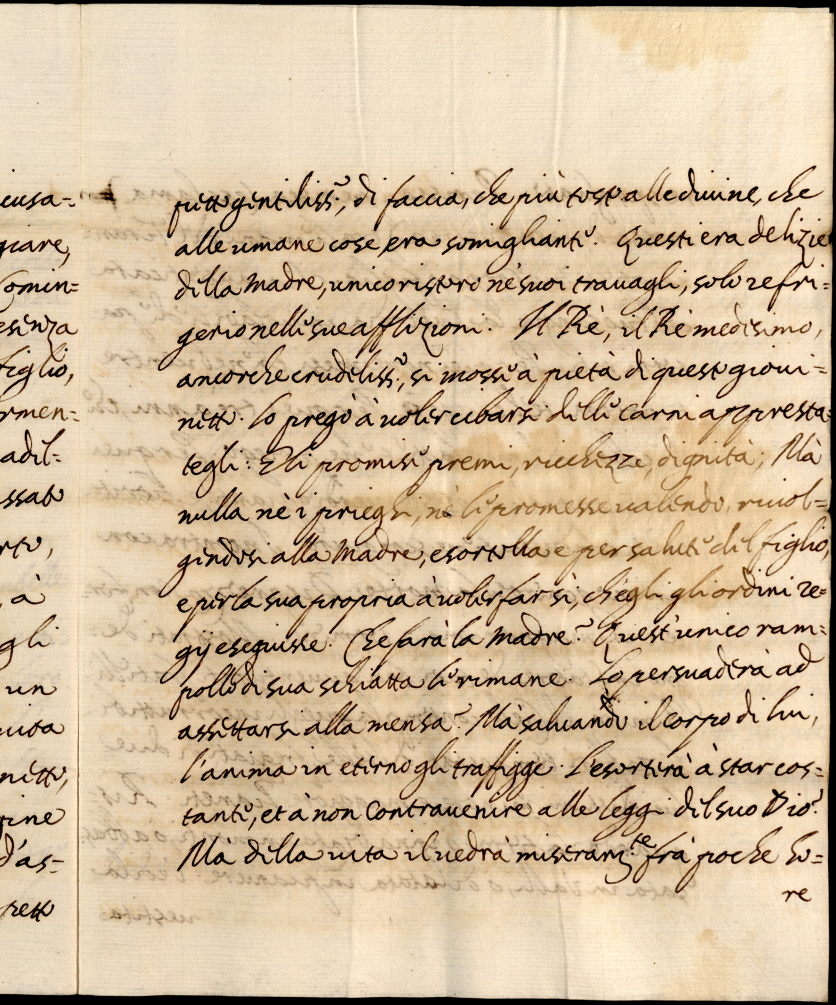 cusa=
giare,
Comin=
esenza
figlio,
rmen=
adil=
ssato
rto,
, à
gli
un
uita
netto,
gine
d'as=
petto
petto gentiliss:, di faccia, che più tosto alle diuine, che
alle umane cose, era somigliante. Questi era delizie
della Madre, unico ristoro ne' suoi trauagli, solo refri=
gerio nelle sue afflizioni. Il Rè, il Rè medesimo,
ancorche crudeliss:, si mosse à pietà di questo gioui=
netto. Lo pregò à uoler cibarsi delle carni appresta=
tegli: Eli promise premi, ricchezze, dignità; Mà
nulla nè i prieghi, nè le promesse ualendo, riuol=
gendosi alla Madre, esortolla e per salute del figlio,
e per la sua propria à uoler far sì, ch'egli gli ordini re=
gij eseguisse. Che farà la Madre? Quest'unico ram=
pollo di sua schiatta le rimane. Lo persuaderà ad
assettarsi alla mensa? Mà saluando il corpo di lui,
l'anima in eterno gli traffigge. L'esorterà à star cos=
tante, et à non Contrauenire alle leggi del suo Dio?
Mà della uita il uedrà miseram:te frà poche ho=
re